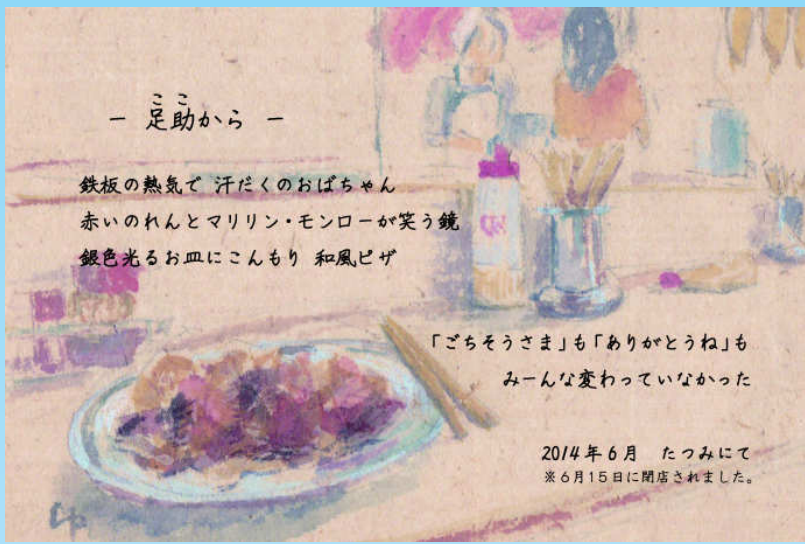 ー 足助から ー
ここ
鉄板の熱気で 汗だくのおばちゃん
赤いのれんとマリリン・モンローが笑う鏡
銀色光るお皿にこんもり 和風ピザ
「ごちそうさま」も「ありがとうね」も
みーんな変わっていなかった
2014年6月 たつみにて
※6月15日に閉店されました。